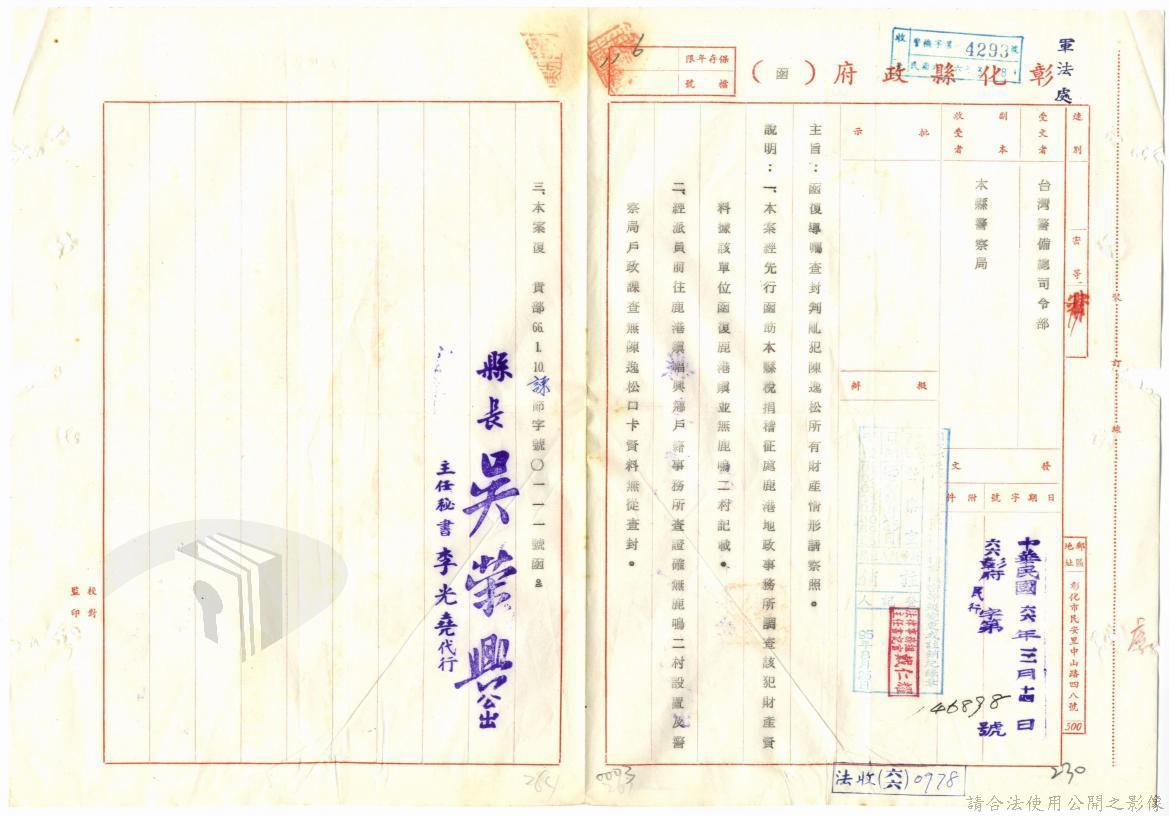 軍法處
彰化縣政府（函）
收
4293
保存年限
檔號
速別
密等
受文者
台灣警備總司令部
副本收受者
本縣警察局
批示
擬辦
發文
日期
字號
附件
中華民國六六年三月十四日
六六彰府民行字第
46898
號
郵區地址
彰化市民安里中山路四八號
500
裝訂線
主旨：函復導囑查封判亂犯陳逸松所有財產情形請察照。
說明：一、本案經先行函助本縣稅捐稽征處鹿港地政事務所調查該犯財產資
料據該單位函復鹿港鎮並無鹿鳴二村記載。
二、經派員前往鹿港鎮福興鄉戶籍事務所查證確無鹿鳴二村設置及警
察局戶政課查無陳逸松口卡資料無從查封。
三、本案復　貴部66.1.10.諫節字號〇一一一號函。
縣長吳榮興公出
主任秘書李光堯代行
校對
監印
戴仁
95年8月25日
法收(六六)0978
230
0003
263
264
請合法使用公開之影像